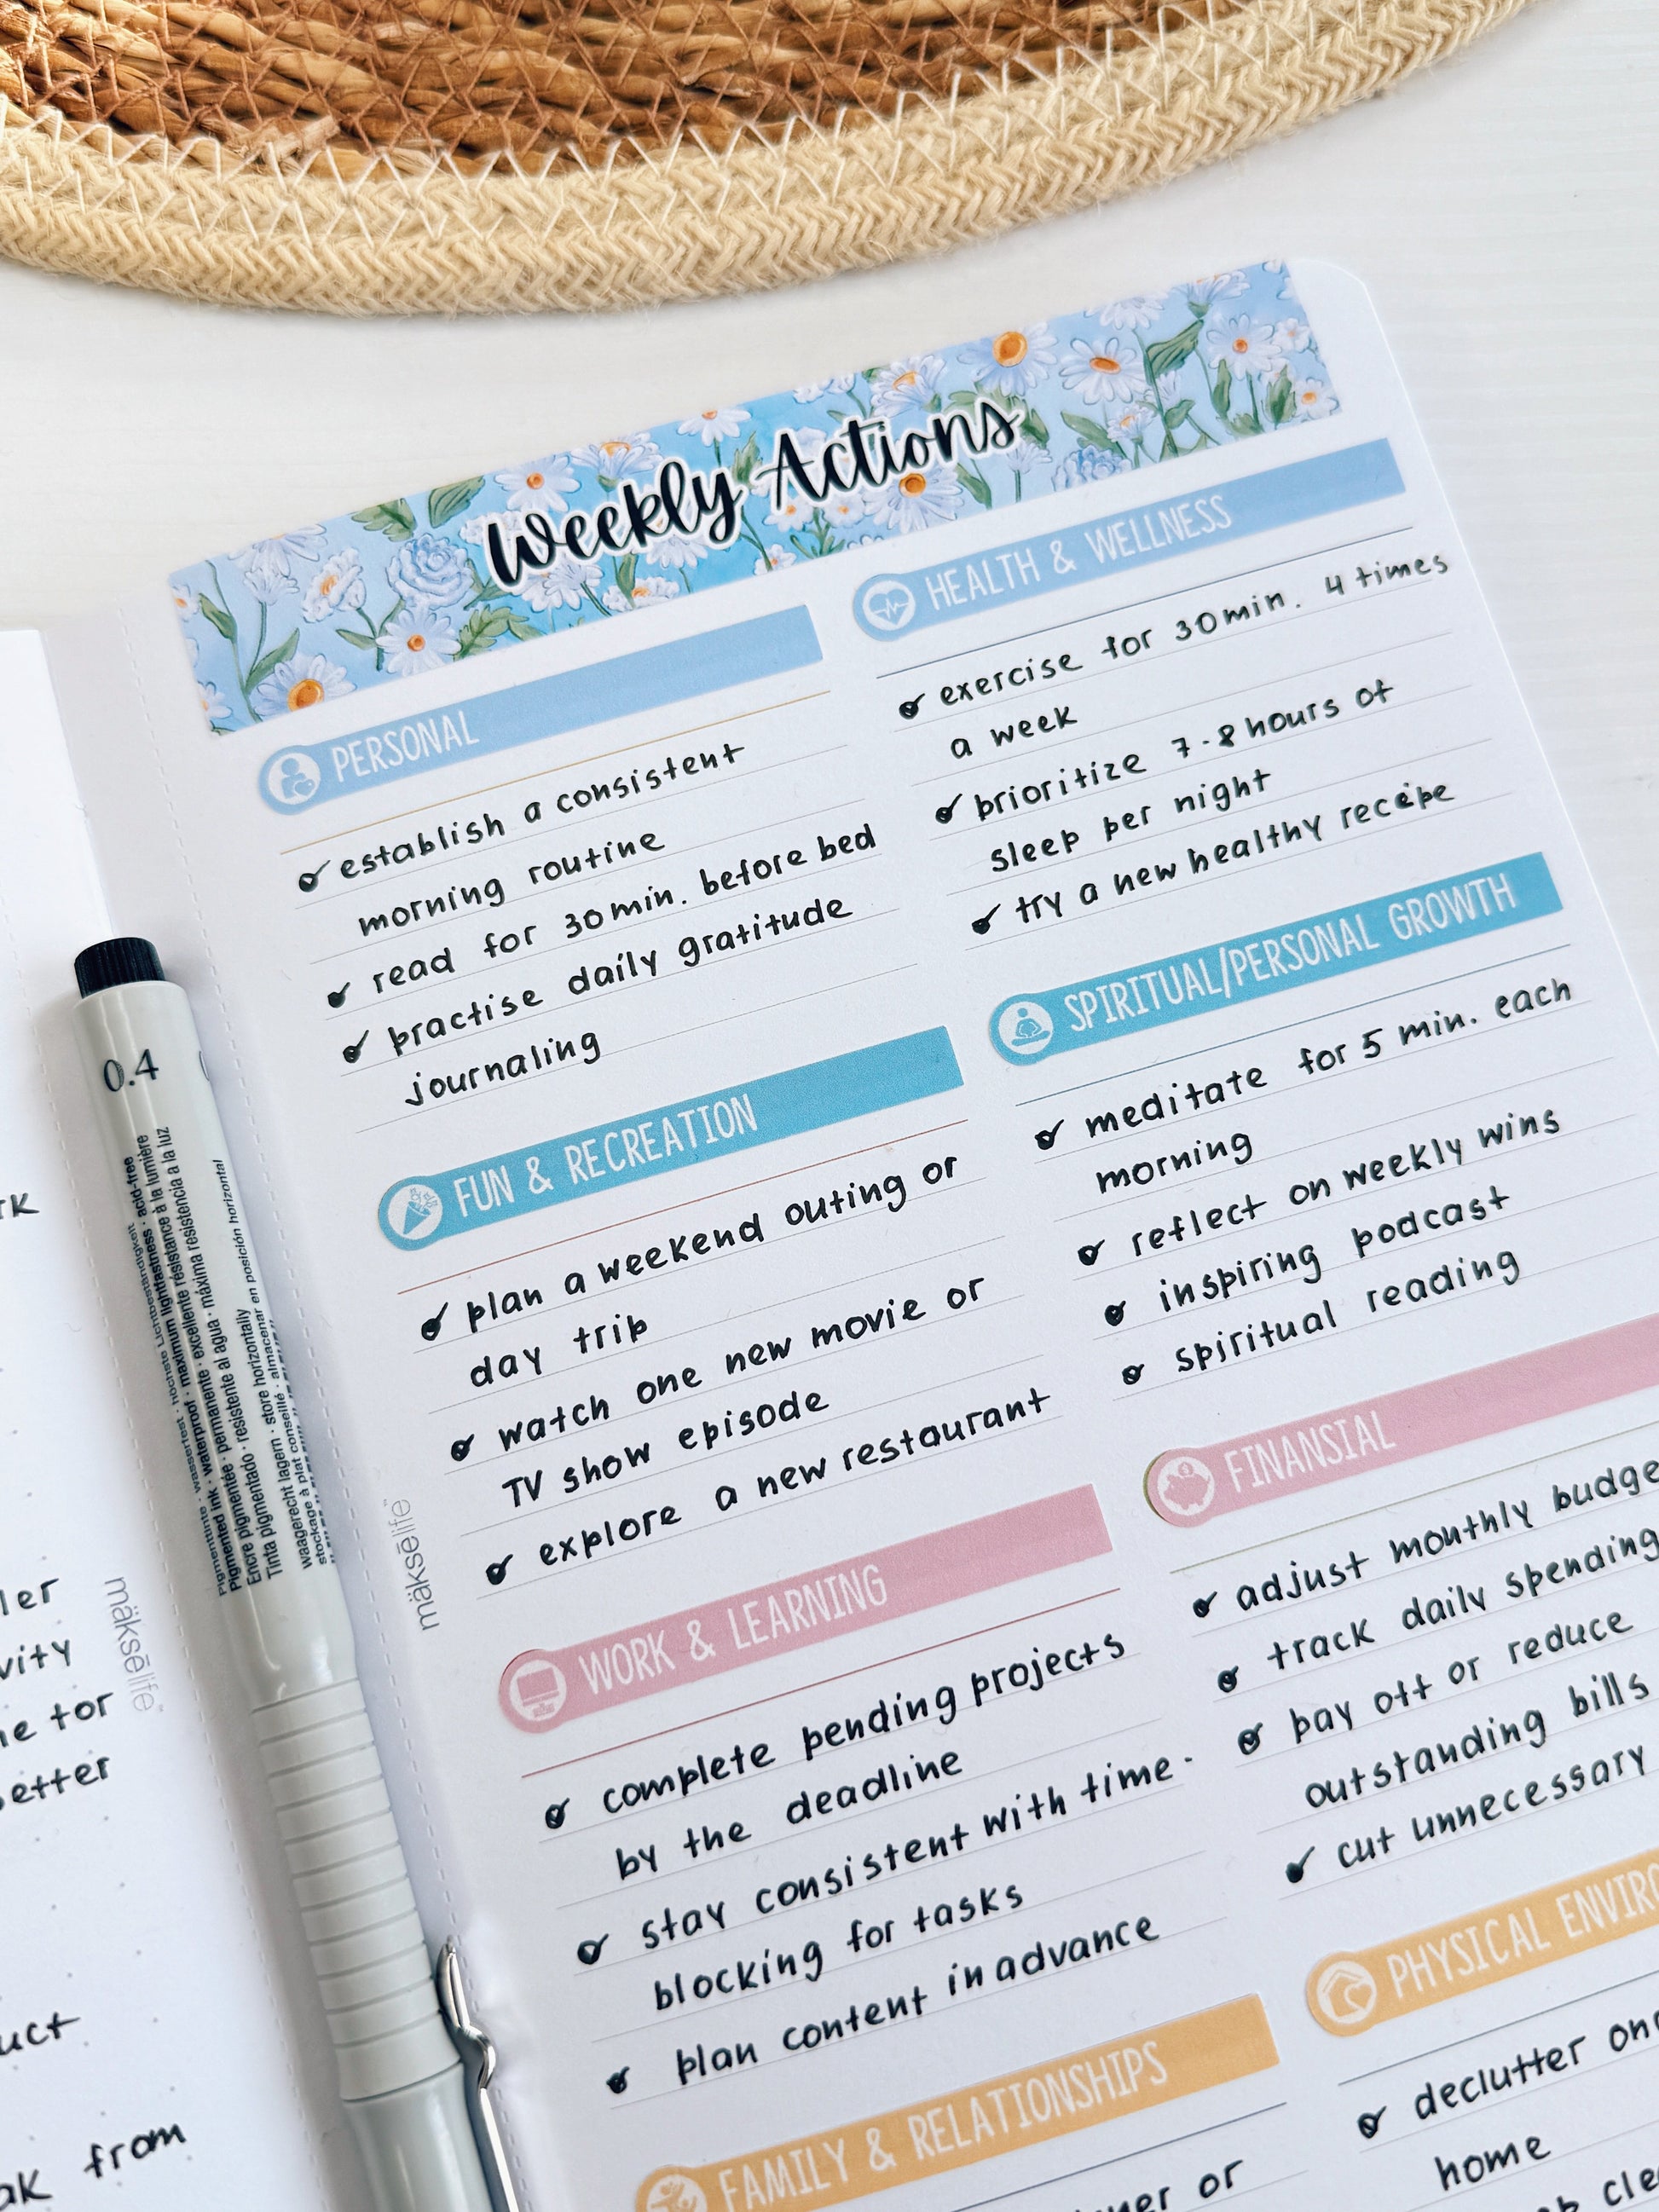 Weekly Actions
PERSONAL
establish a consistent
morning routine
read for 30 min. before bed
practise daily gratitude
journaling
HEALTH & WELLNESS
exercise for 30 min. 4 times
a week
prioritize 7-8 hours of
sleep per night
try a new healthy recipe
FUN & RECREATION
plan a weekend outing or
day trip
watch one new movie or
TV show episode
explore a new restaurant
SPIRITUAL/PERSONAL GROWTH
meditate for 5 min. each
morning
reflect on weekly wins
inspiring podcast
spiritual reading
WORK & LEARNING
complete pending projects
by the deadline
stay consistent with time-
blocking for tasks
plan content in advance
FINANSIAL
adjust monthly budge
track daily spending
pay off or reduce
outstanding bills
cut unnecessary
FAMILY & RELATIONSHIPS
or
PHYSICAL ENVIRO
declutter
home
mäksēlife™
mäksēlife™
0.4
höchste Lichtbeständigkeit · acid-free
Pigmented ink · waterproof · maximum lightfastness
Encre pigmentée · permanente · excellente résistance à la lumière
Tinta pigmentado · resistente al agua · máxima resistencia a la luz
waagerecht lagern · store horizontally
stockage à plat conseillé · almacenar en posición horizontal
ler
vity
for
etter
uct
from